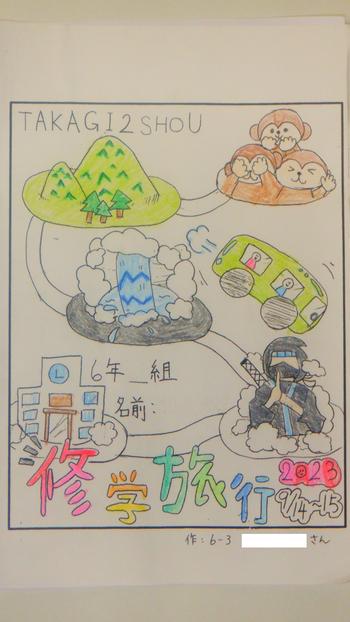 TAKAGI2SHOU
6年_組
名前:
修学旅行
2023
9/14~15
作:6-3 さん